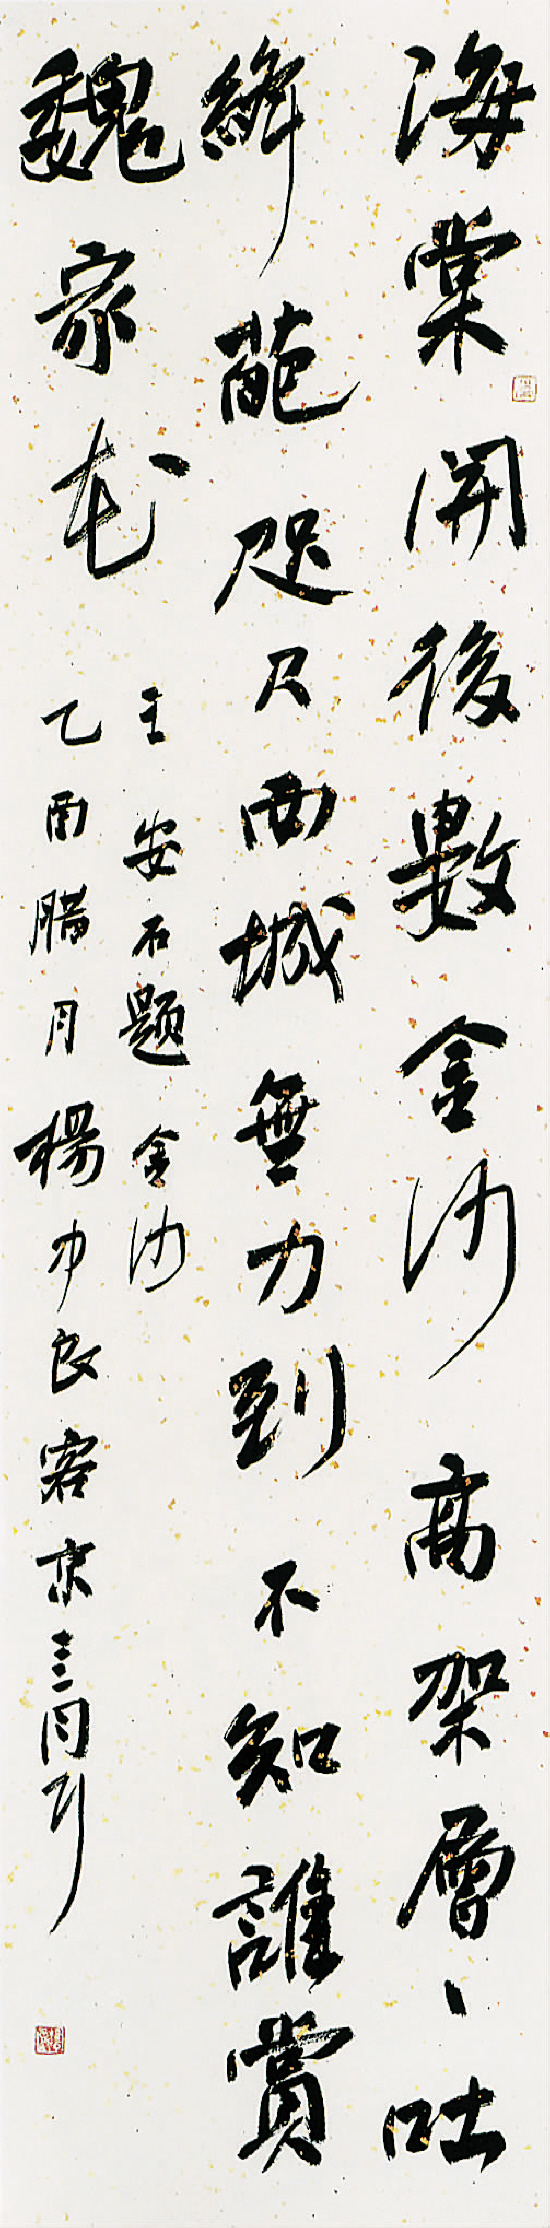 海棠開後數金沙高架層、吐
絳葩咫尺西城無力到不知誰賞
魏家花
王安石題金沙
乙酉腊月楊中良客京三月引